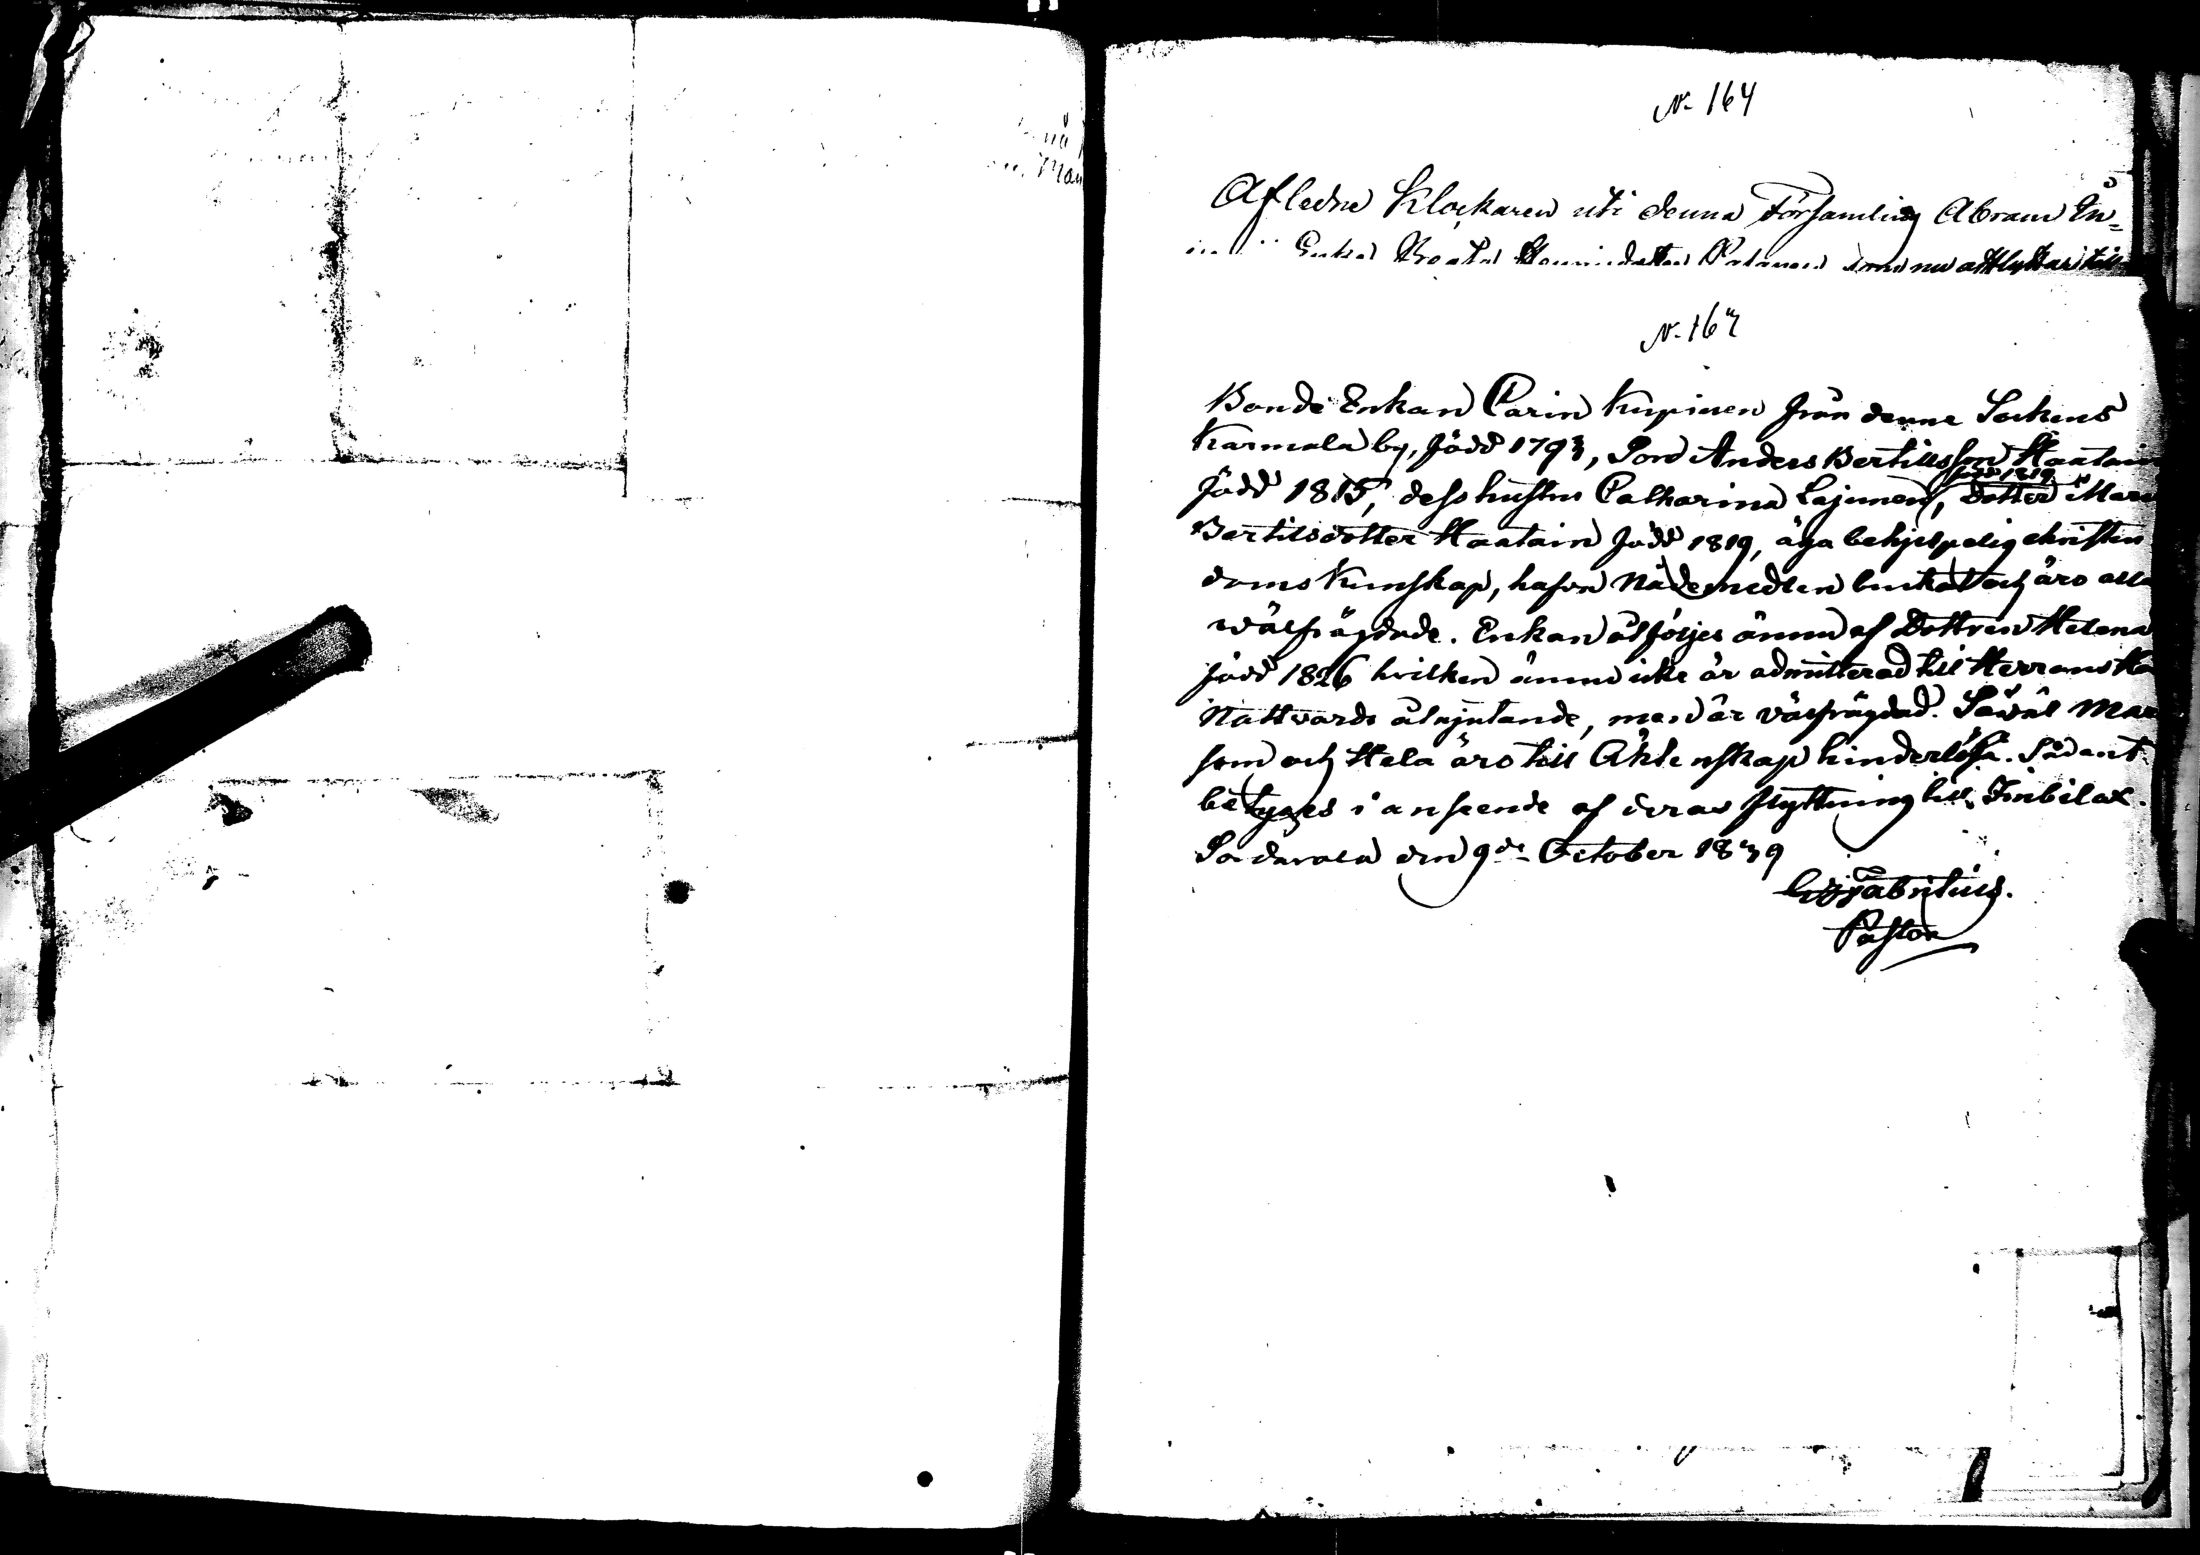 N. 164
Afledne Klockaren uti denna Församling Abram En=
Enka Beata Henricsdotter Putanen som nu afflyttar till
N. 167
Bonde Enkan Carin Kupinen från denne Sockens
Karmala by, född 1793, Son Anders Bertillsson Haatain
född 1819
född 1815, dess hustru Catharina Lajunen, Dotter Mar
Bertilsdotter Haatain född 1819, äga behjelpelig christen
doms Kunskap, hafva Nådemedlen brukat och äro alla
wälfrägdade. Enkan åtföljes ännu af Dottren Helena
född 1826 hvilken ännu icke är admitterad till Herrans H
Nattvards åtnjutande, men är välfrägdad. Såväl Mar
som och Hela äro till Äktenskap hinderlösa. Sådant
betyges i anseende af deras flyttning till Imbilax.
Sordavala den 9de October 1839
Fabritius.
Pastor